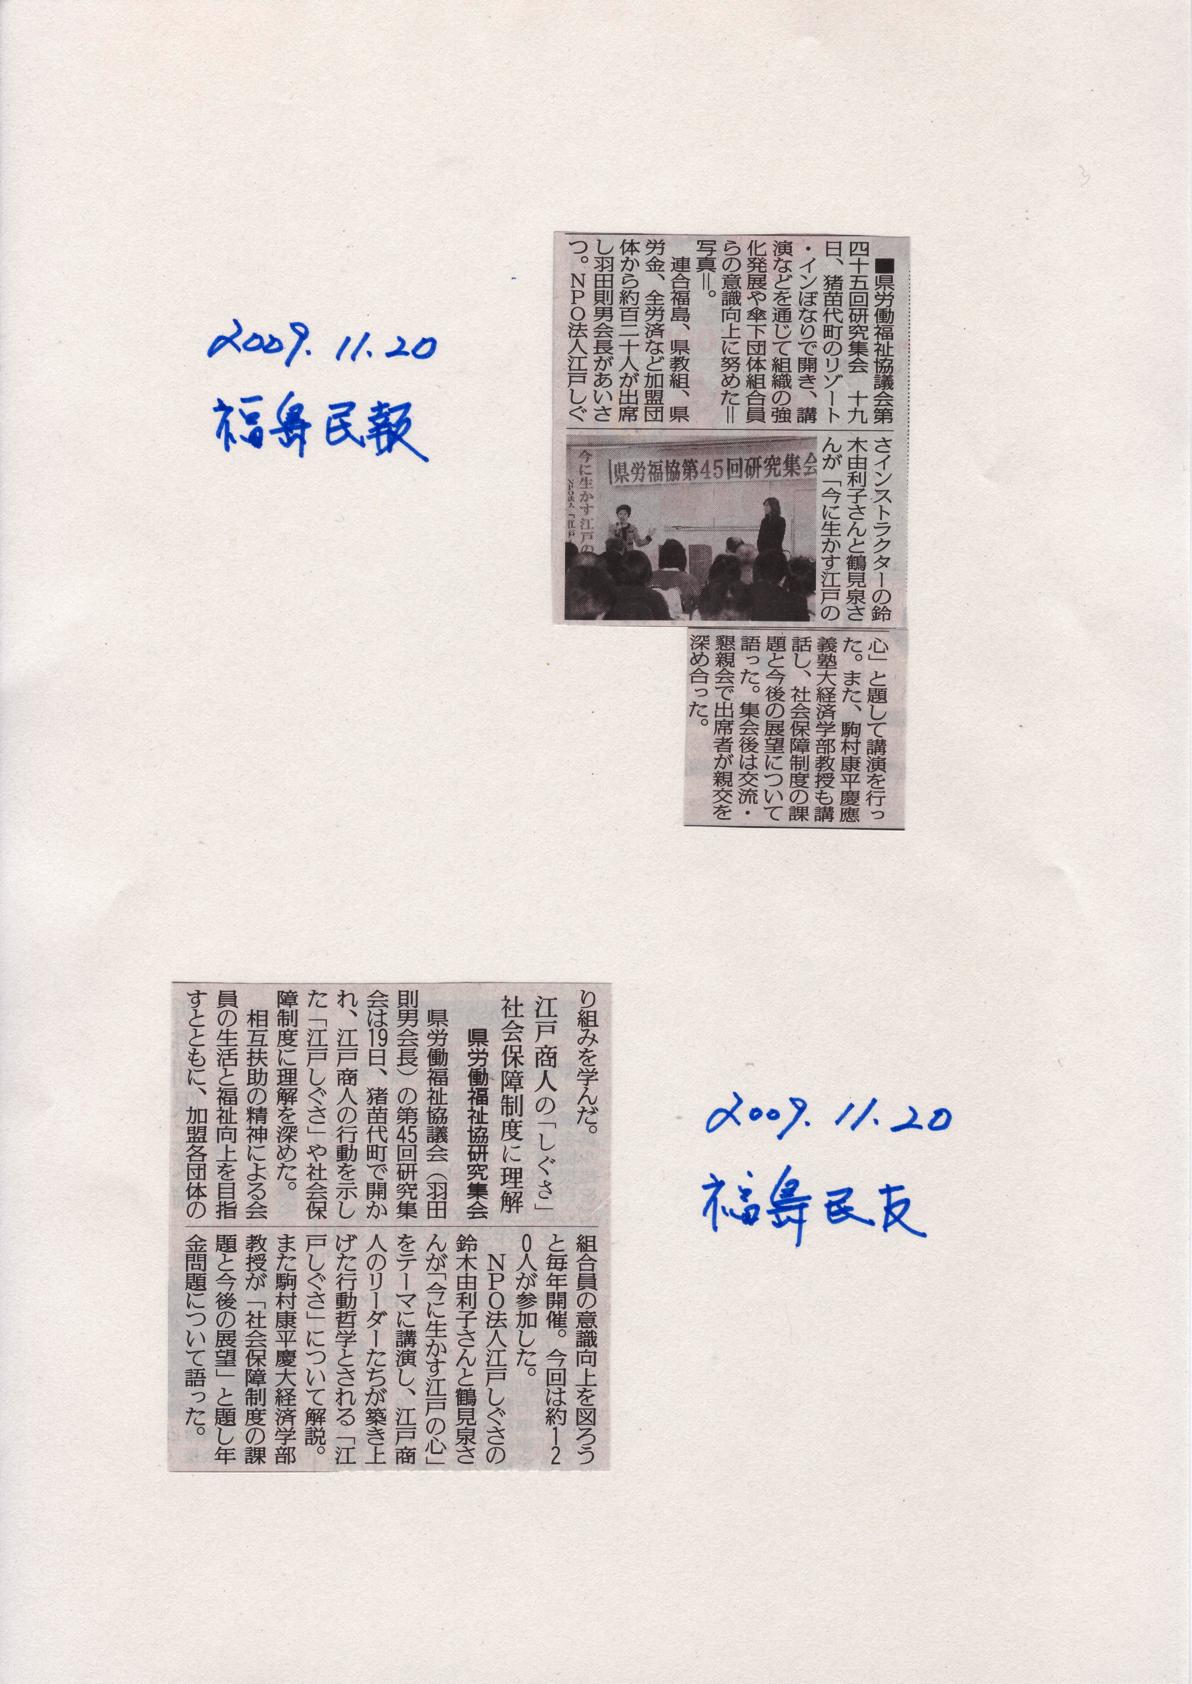 2009.11.20
福島民報
■県労働福祉協議会第
四十五回研究集会　十九
日、猪苗代町のリゾート
・インぼなりで開き、講
演などを通じて組織の強
化発展や傘下団体組合員
らの意識向上に努めた＝
写真＝。
連合福島、県教組、県
労金、全労済など加盟団
体から約百二十人が出席
し羽田則男会長があいさ
つ。ＮＰＯ法人江戸しぐ
さインストラクターの鈴
木由利子さんと鶴見泉さ
んが「今に生かす江戸の
県労福協第45回研究集会
今に生かす江戸の
NPO法人「江戸
心」と題して講演を行っ
た。また、駒村康平慶應
義塾大経済学部教授も講
話し、社会保障制度の課
題と今後の展望について
語った。集会後は交流・
懇親会で出席者が親交を
深め合った。
2009.11.20
福島民友
り組みを学んだ。
江戸商人の「しぐさ」
社会保障制度に理解
県労働福祉協研究集会
県労働福祉協議会（羽田
則男会長）の第45回研究集
会は19日、猪苗代町で開か
れ、江戸商人の行動を示し
た「江戸しぐさ」や社会保
障制度に理解を深めた。
相互扶助の精神による会
員の生活と福祉向上を目指
すとともに、加盟各団体の
組合員の意識向上を図ろう
と毎年開催。今回は約１２
０人が参加した。
ＮＰＯ法人江戸しぐさの
鈴木由利子さんと鶴見泉さ
んが「今に生かす江戸の心」
をテーマに講演し、江戸商
人のリーダーたちが築き上
げた行動哲学とされる「江
戸しぐさ」について解説。
また駒村康平慶大経済学部
教授が「社会保障制度の課
題と今後の展望」と題し年
金問題について語った。